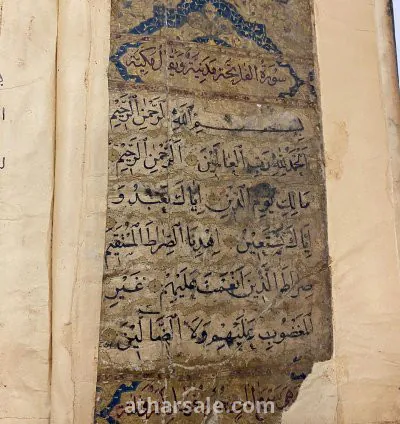 سورة الفاتحة مدنية ويقال مكية
بسم الله الرحمن الرحيم
الحمد لله رب العالمين الرحمن الرحيم
مالك يوم الدين اياك نعبد و
اياك نستعين اهدنا الصراط المستقيم
صراط الذين انعمت عليهم غير
المغضوب عليهم ولا الضالين
atharsale.com